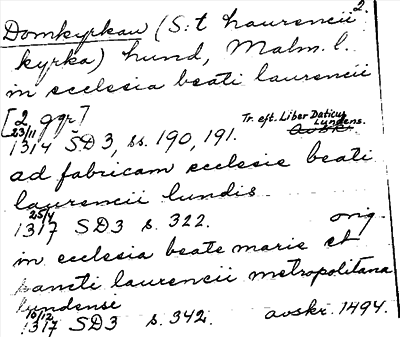 2.
Domkyrkan (S:t Laurencii
kyrka) Lund, Malm. l.
in ecclesia beati laurencii
[2 ggr] Tr. eft. Liber Daticus
23/11 Lundens.
1314 SD3, ss. 190, 191.
ad fabricam ecclesie beati
laurencii lundis
25/4 orig.
1317 SD3 s. 322.
in ecclesia beate marie et
sancti laurencii metropolitana
lundensi
10/12 avskr. 1494.
1317 SD3 s. 342.